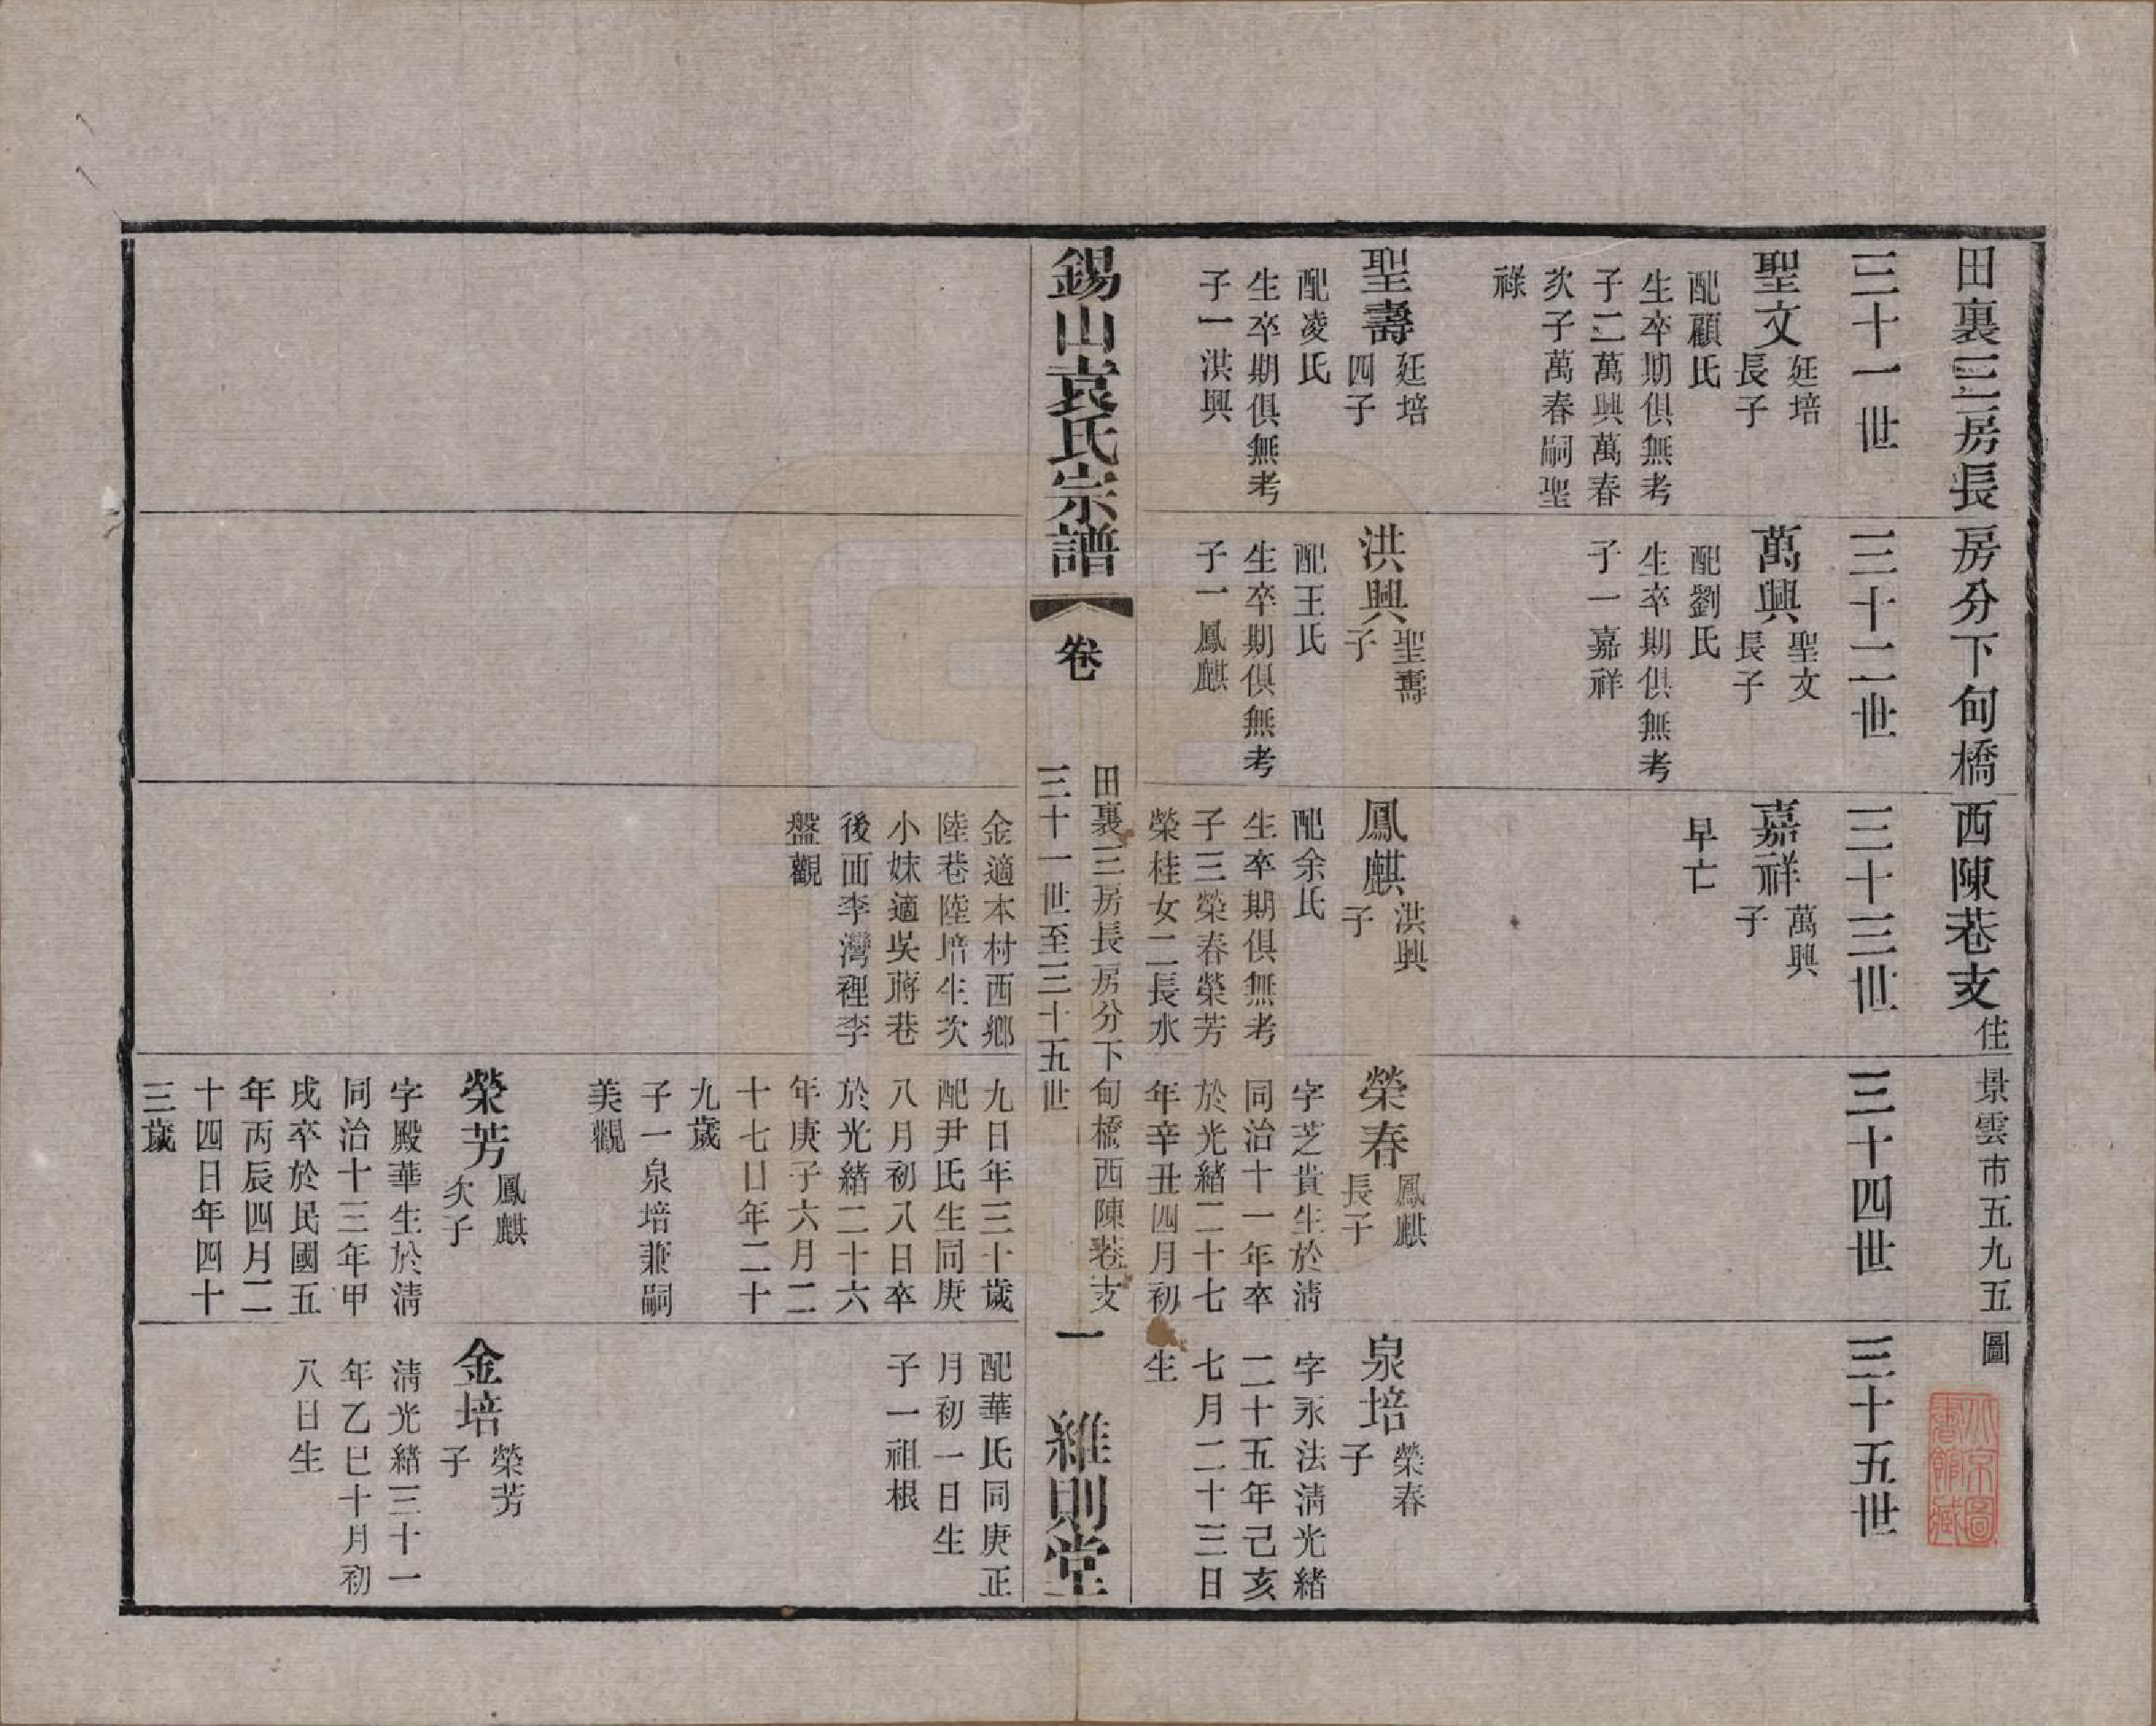 田裏三房長房分下甸橋西陳巷支住景雲市五九五圖
三十一世
聖文
廷培
長子
配顧氏
生卒期俱無考
子二萬興萬春
次子萬春嗣聖
祿
聖壽
廷培
四子
配凌氏
生卒期俱無考
子一洪興
三十二世
萬興
聖文
長子
配劉氏
生卒期俱無考
子一嘉祥
洪興
聖壽
子
配王氏
生卒期俱無考
子一鳳麒
三十三世
嘉祥
萬興
子
早亡
鳳麒
洪興
子
配余氏
生卒期俱無考
子三榮春榮芳
榮桂女二長水
三十四世
榮春
鳳麒
長子
字芝貴生於清
同治十一年卒
於光緒二十七
年辛丑四月初
三十五世
泉培
榮春
子
字永法清光緒
二十五年己亥
七月二十三日
生
錫山袁氏宗譜
卷
田裏三房長房分下甸橋西陳巷支
三十一世至三十五世
一
維則堂
金適本村西鄉
陸巷陸培生次
小妹適吳蔣巷
後面李灣裡李
盤觀
九日年三十歲
配尹氏生同庚
八月初八日卒
於光緒二十六
年庚子六月二
十七日年二十
九歲
子一泉培兼嗣
美觀
榮芳
鳳麒
次子
字殿華生於清
同治十三年甲
戌卒於民國五
年丙辰四月二
十四日年四十
三歲
配華氏同庚正
月初一日生
子一祖根
金培
榮芳
子
清光緒三十一
年乙巳十月初
八日生